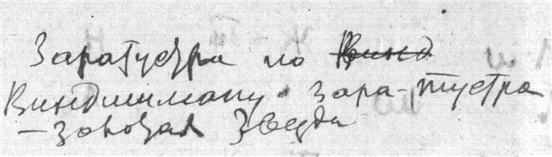 Заратустра по ~~Винд~~
Виндишману. зара-тустра
– золотая звезда